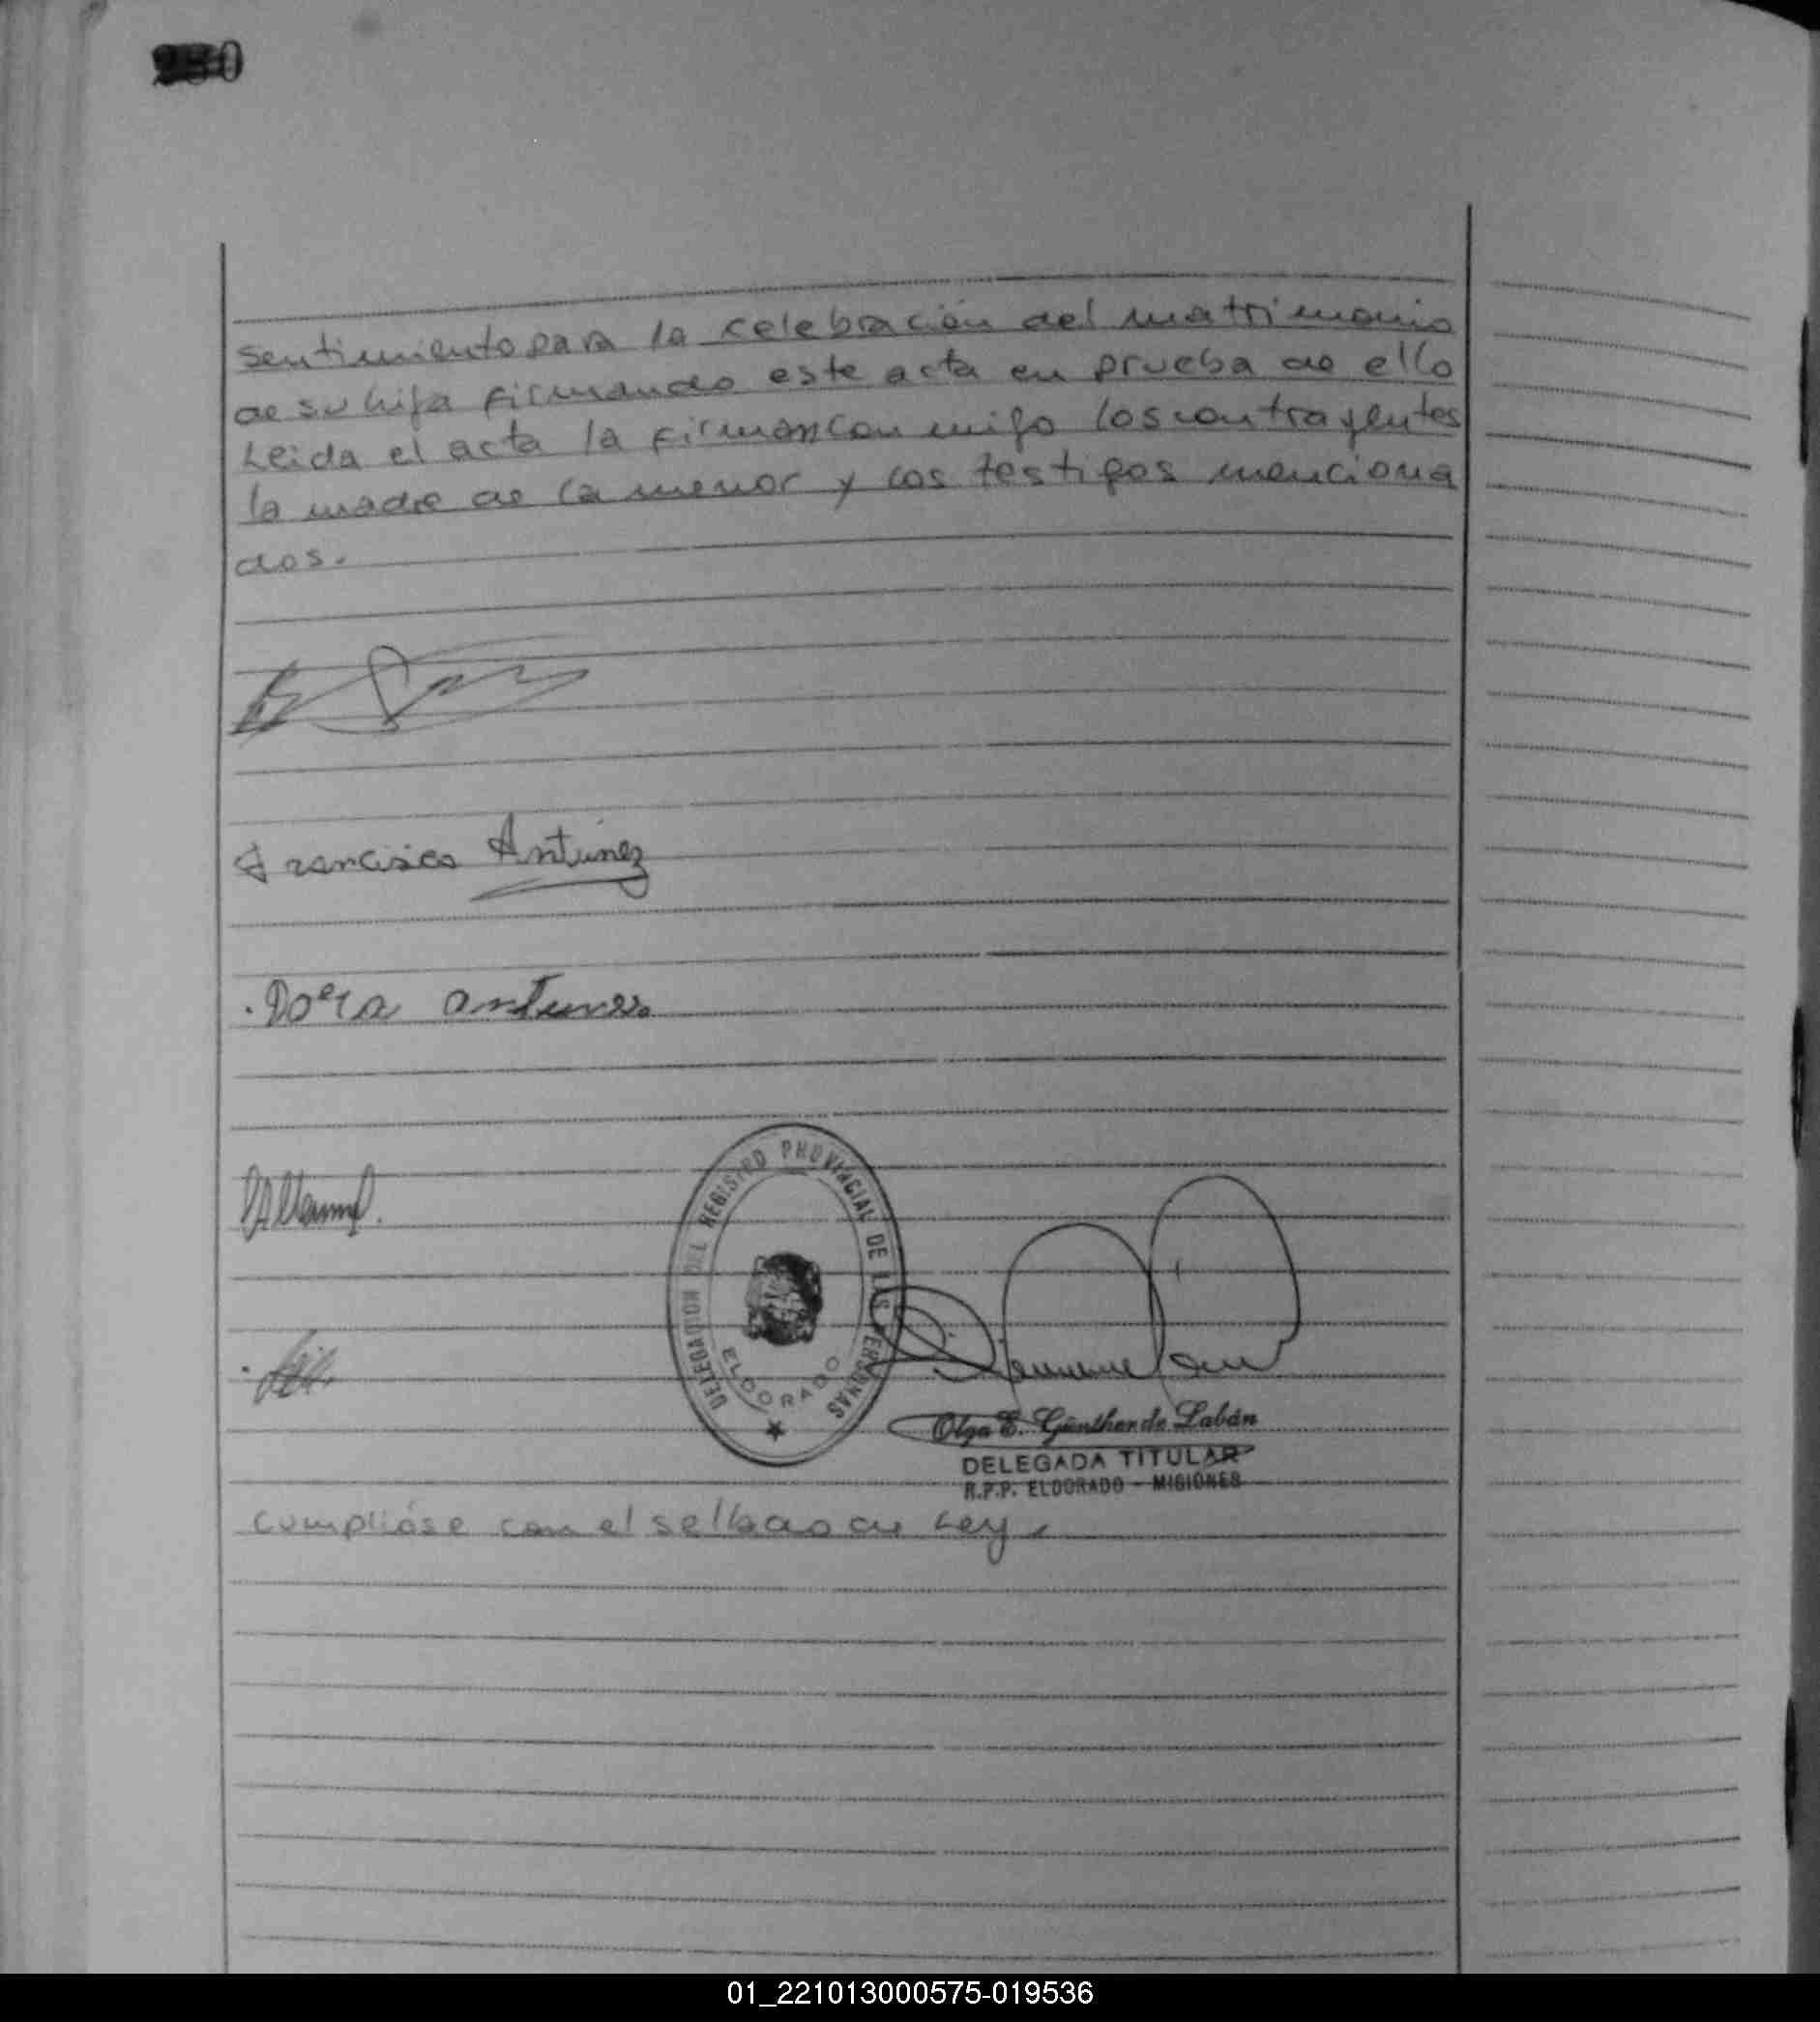 280
sentimiento para la celebración del matrimonio
de su hija firmando este acta en prueba de ello
Leida el acta la firman conmigo los contrayentes
la madre de la menor y los testigos menciona
dos.
Francisco Antunez
Dora antunes
DELEGACION DEL REGISTRO PROVINCIAL DE LAS PERSONAS
ELDORADO
Olga E. Günther de Labán
DELEGADA TITULAR
R.P.P. ELDORADO - MISIONES
Cumplióse con el sellado de Ley.
01_221013000575-019536